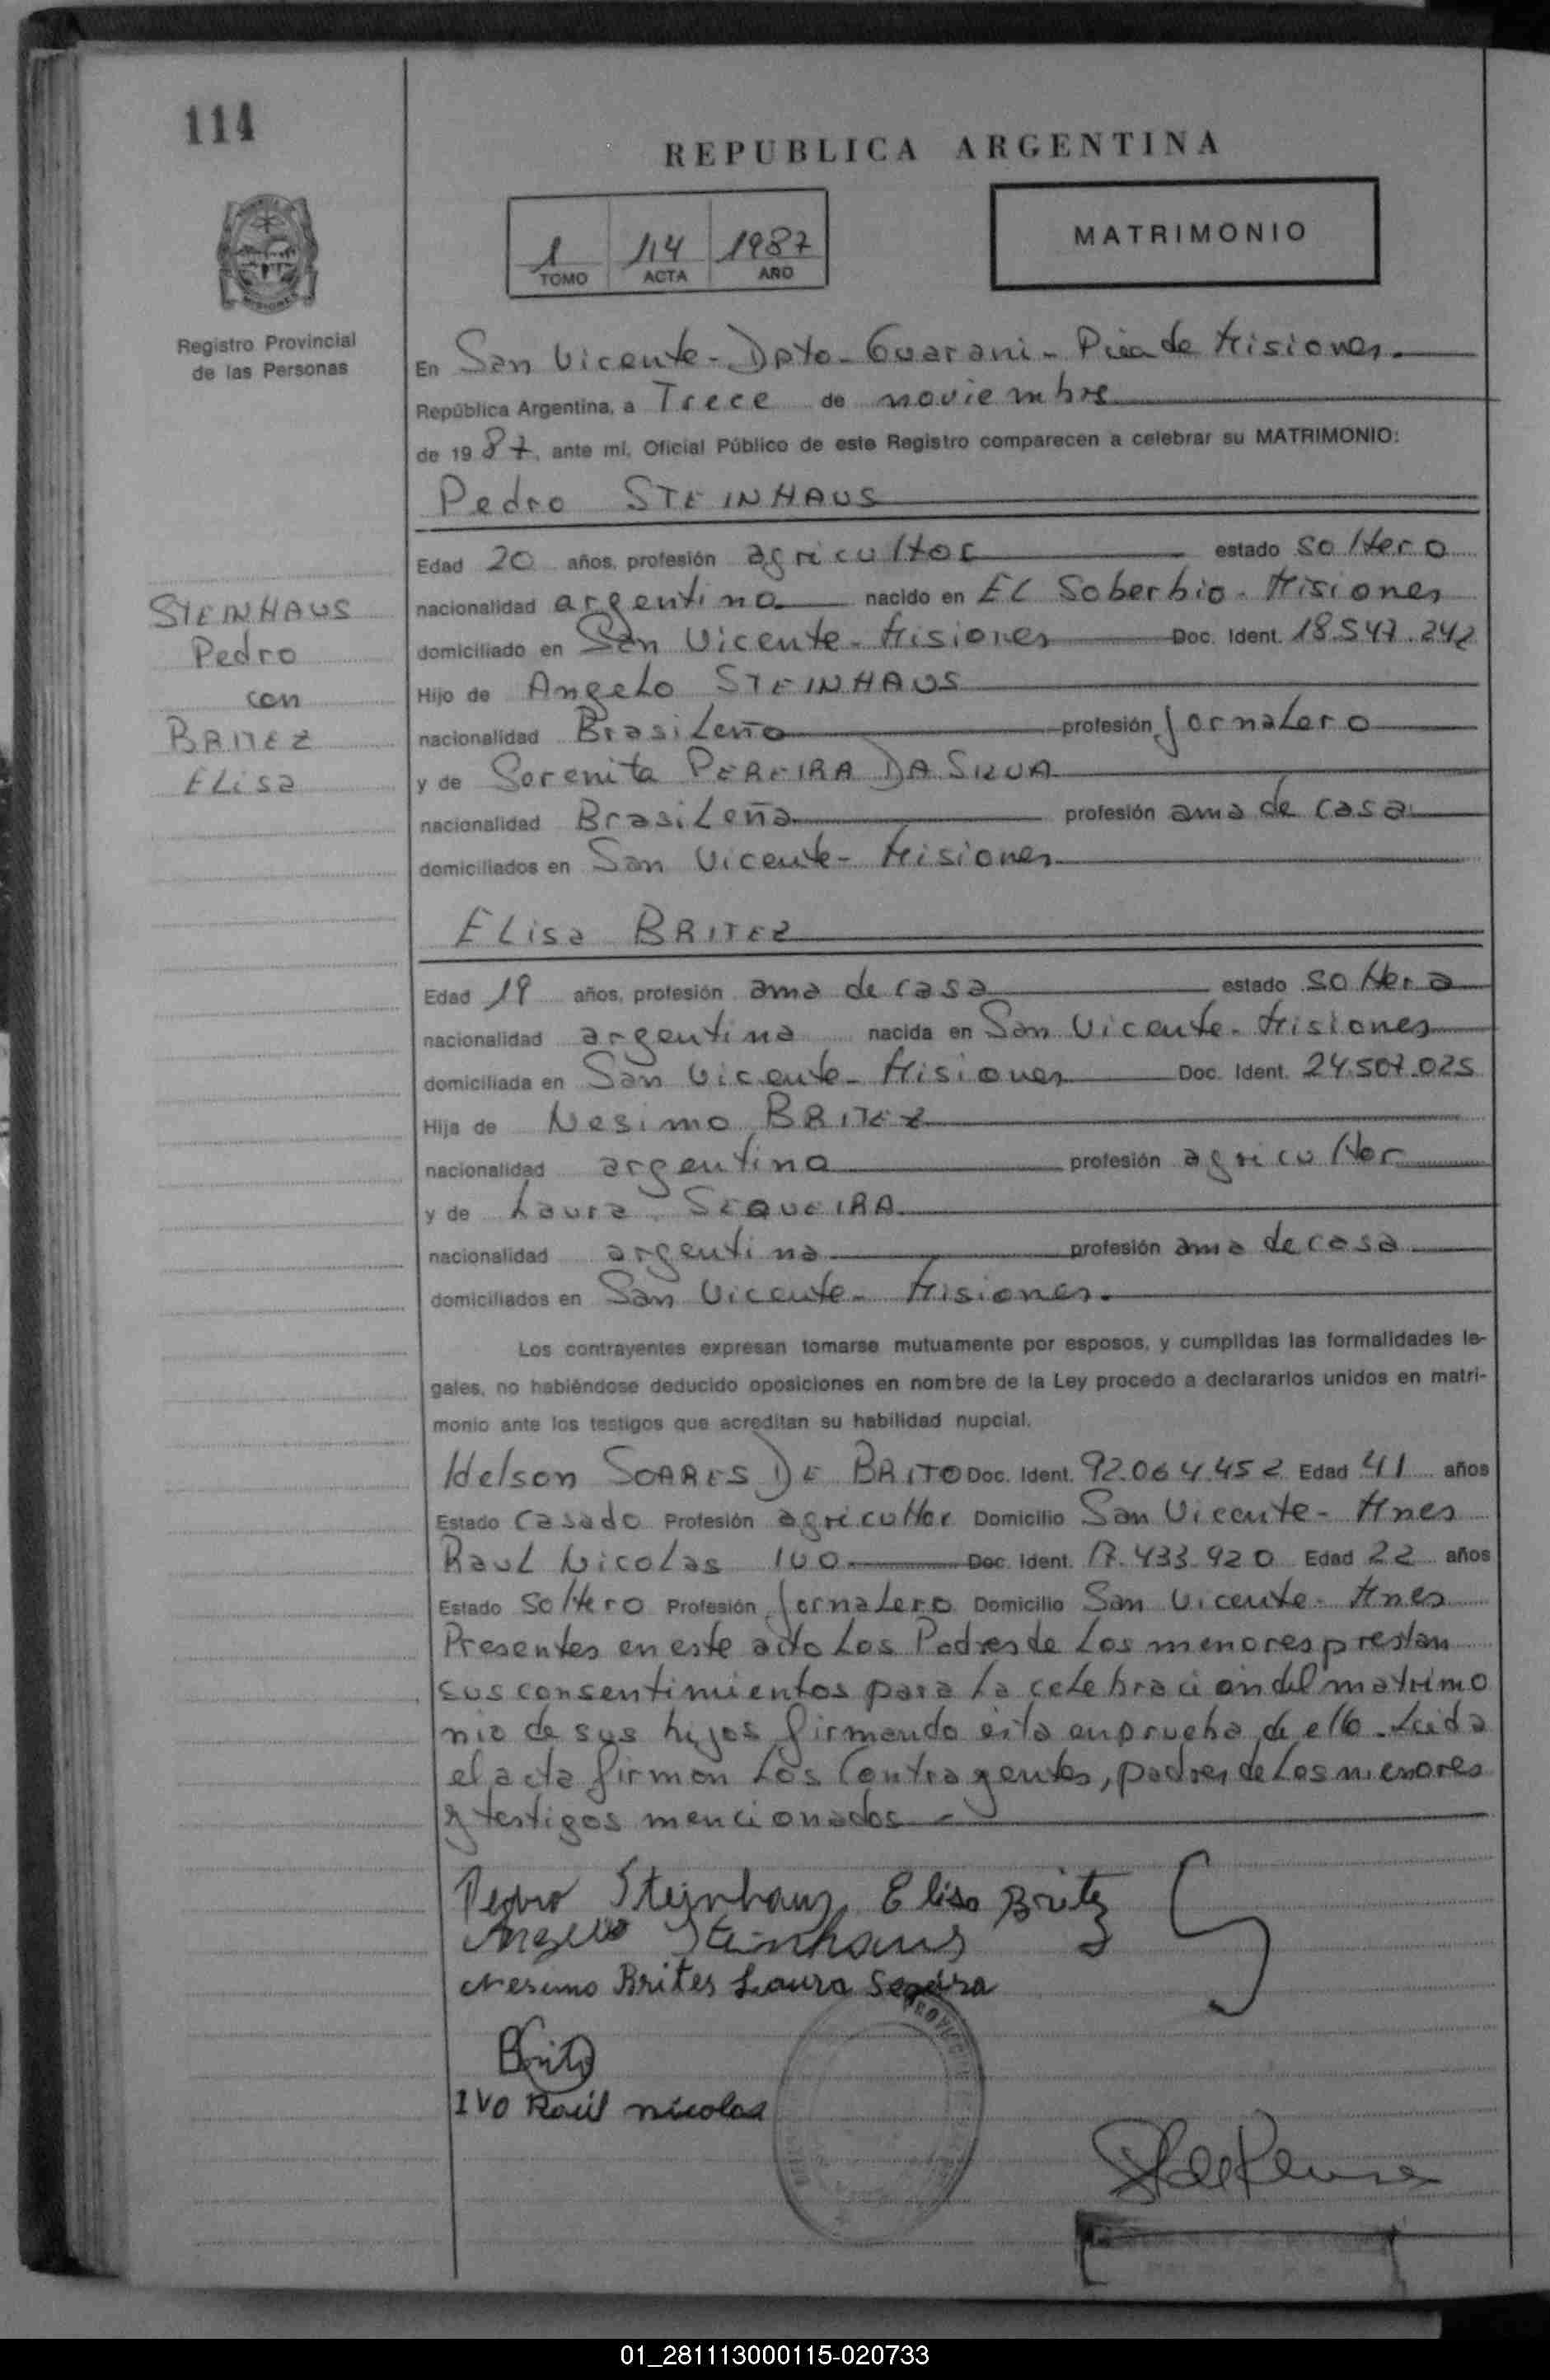 114
REPUBLICA ARGENTINA
1 114 1987
TOMO ACTA AÑO
MATRIMONIO
Registro Provincial
de las Personas
En San Vicente - Dpto - Guarani - Pcia de Misiones.
República Argentina, a Trece de noviembre
de 1987, ante mí, Oficial Público de este Registro comparecen a celebrar su MATRIMONIO:
Pedro STEINHAUS
Edad 20 años, profesión agricultor estado soltero
nacionalidad argentino nacido en EL Soberbio - Misiones
domiciliado en San Vicente - Misiones Doc. Ident. 18.547.242
Hijo de Angelo STEINHAUS
nacionalidad Brasileño profesión jornalero
y de Sorenita PEREIRA DA SILVA
nacionalidad Brasileña profesión ama de casa
domiciliados en San Vicente - Misiones
STEINHAUS
Pedro
con
BRITEZ
Elisa
Elisa BRITEZ
Edad 19 años, profesión ama de casa estado soltera
nacionalidad argentina nacida en San Vicente - Misiones
domiciliada en San Vicente - Misiones Doc. Ident. 24.507.025
Hija de Nesimo BRITEZ
nacionalidad argentino profesión agricultor
y de Laura SEQUEIRA
nacionalidad argentina profesión ama de casa
domiciliados en San Vicente - Misiones.
Los contrayentes expresan tomarse mutuamente por esposos, y cumplidas las formalidades le-
gales, no habiéndose deducido oposiciones en nombre de la Ley procedo a declararlos unidos en matri-
monio ante los testigos que acreditan su habilidad nupcial.
Idelson SOARES DE BRITO Doc. Ident. 92.064.452 Edad 41 años
Estado casado Profesión agricultor Domicilio San Vicente - Mnes
Raul Nicolas IVO Doc. Ident. 17.433.920 Edad 22 años
Estado soltero Profesión jornalero Domicilio San Vicente - Mnes
Presentes en este acto los Padres de los menores prestan
sus consentimientos para la celebración del matrimo
nio de sus hijos firmando ésta en prueba de ello. Leida
el acta firman los Contrayentes, padres de los menores
y testigos mencionados
Pedro Steinhaus Elisa Britez
Angelo Steinhaus
Nesimo Brites Laura Seqeira
Brito
IVO Raúl nicolas
01_281113000115-020733